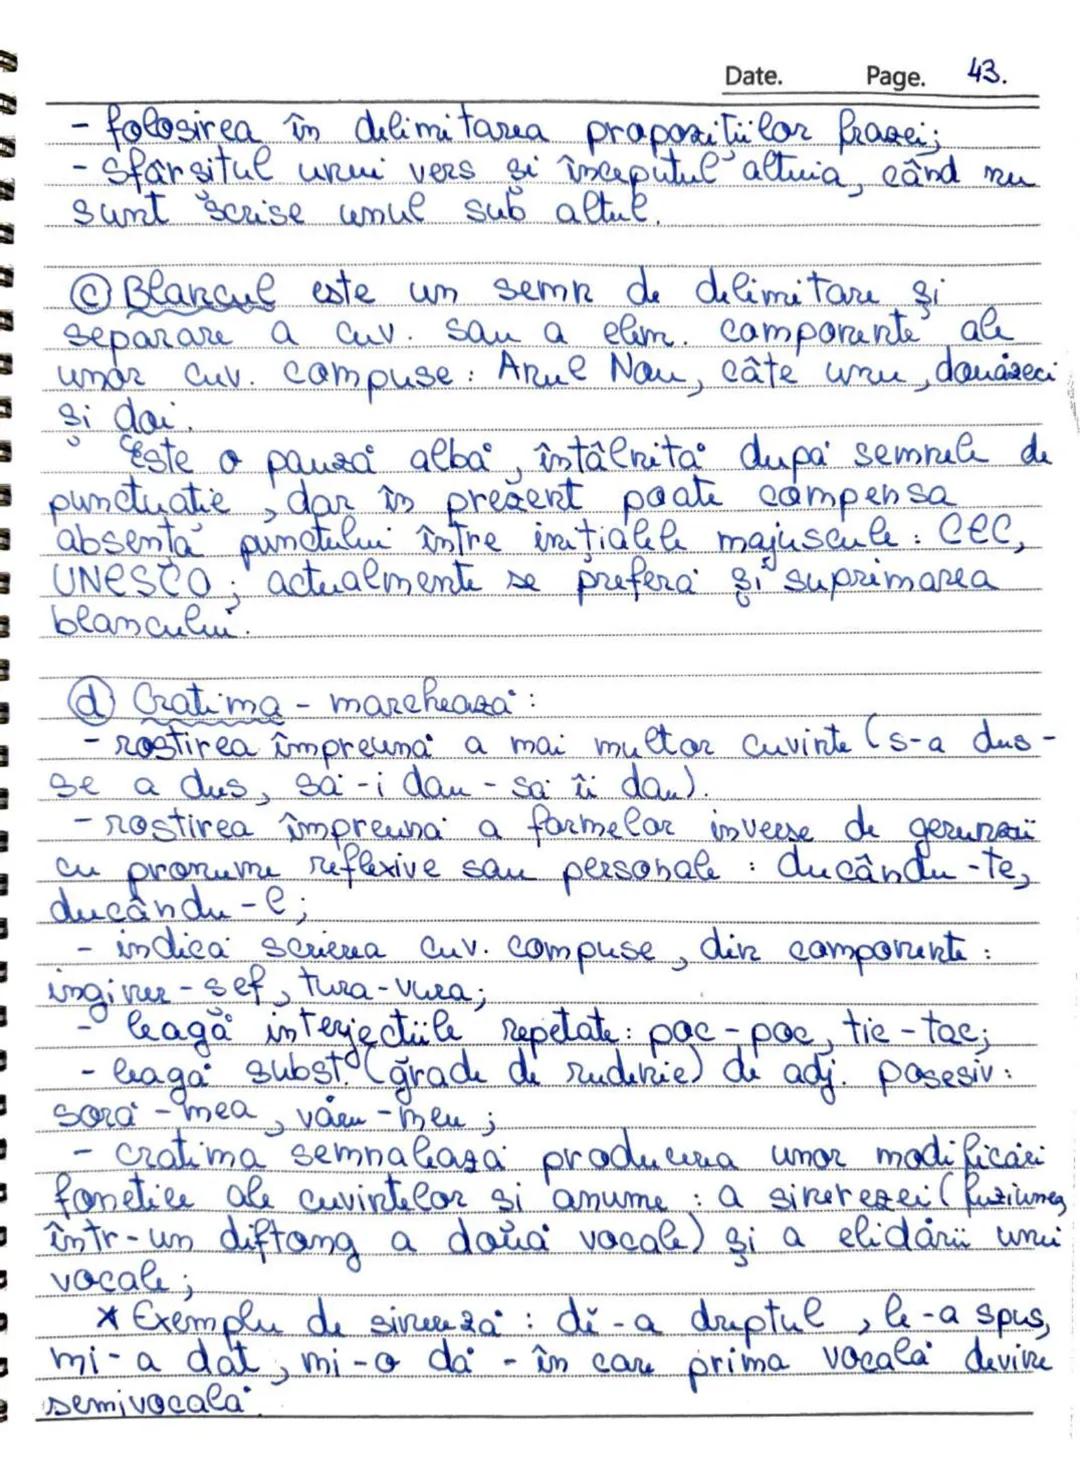 Date. Page. 43.
- folosirea în delimitarea propozițiilor frazei;
- sfârșitul unui vers și începutul altuia, când nu
sunt scrise unul sub altul.
c) Blancul este un semn de delimitare și
separare a cuv. sau a elem. componente ale
unor cuv. compuse: Anul Nou, câte unu, douăzeci
și doi.
Este o pauză albă, întâlnită după semnele de
punctuație, dar în prezent poate compensa
absența punctului între inițialele majuscule: CEC,
UNESCO; actualmente se preferă și suprimarea
blancului.
d) Cratima - marchează:
- rostirea împreună a mai multor cuvinte (s-a dus -
se a dus, să-i dau - să îi dau).
- rostirea împreună a formelor inverse de gerunzii
cu pronume reflexive sau personale: ducându-te,
ducându-l;
- indică scrierea cuv. compuse, din componente:
inginer-șef, tura-vura;
- leagă interjecțiile repetate: poc-poc, tic-tac;
- leagă subst. (grade de rudenie) de adj. posesiv:
soră-mea, văru-meu;
- cratima semnalează producerea unor modificări
fonetice ale cuvintelor și anume: a sinerezei (fuziunea
într-un diftong a două vocale) și a elidării unei
vocale;
* Exemplu de sinereză: di-a dreptul, le-a spus,
mi-a dat, mi-o dă - în care prima vocală devine
semivocală.